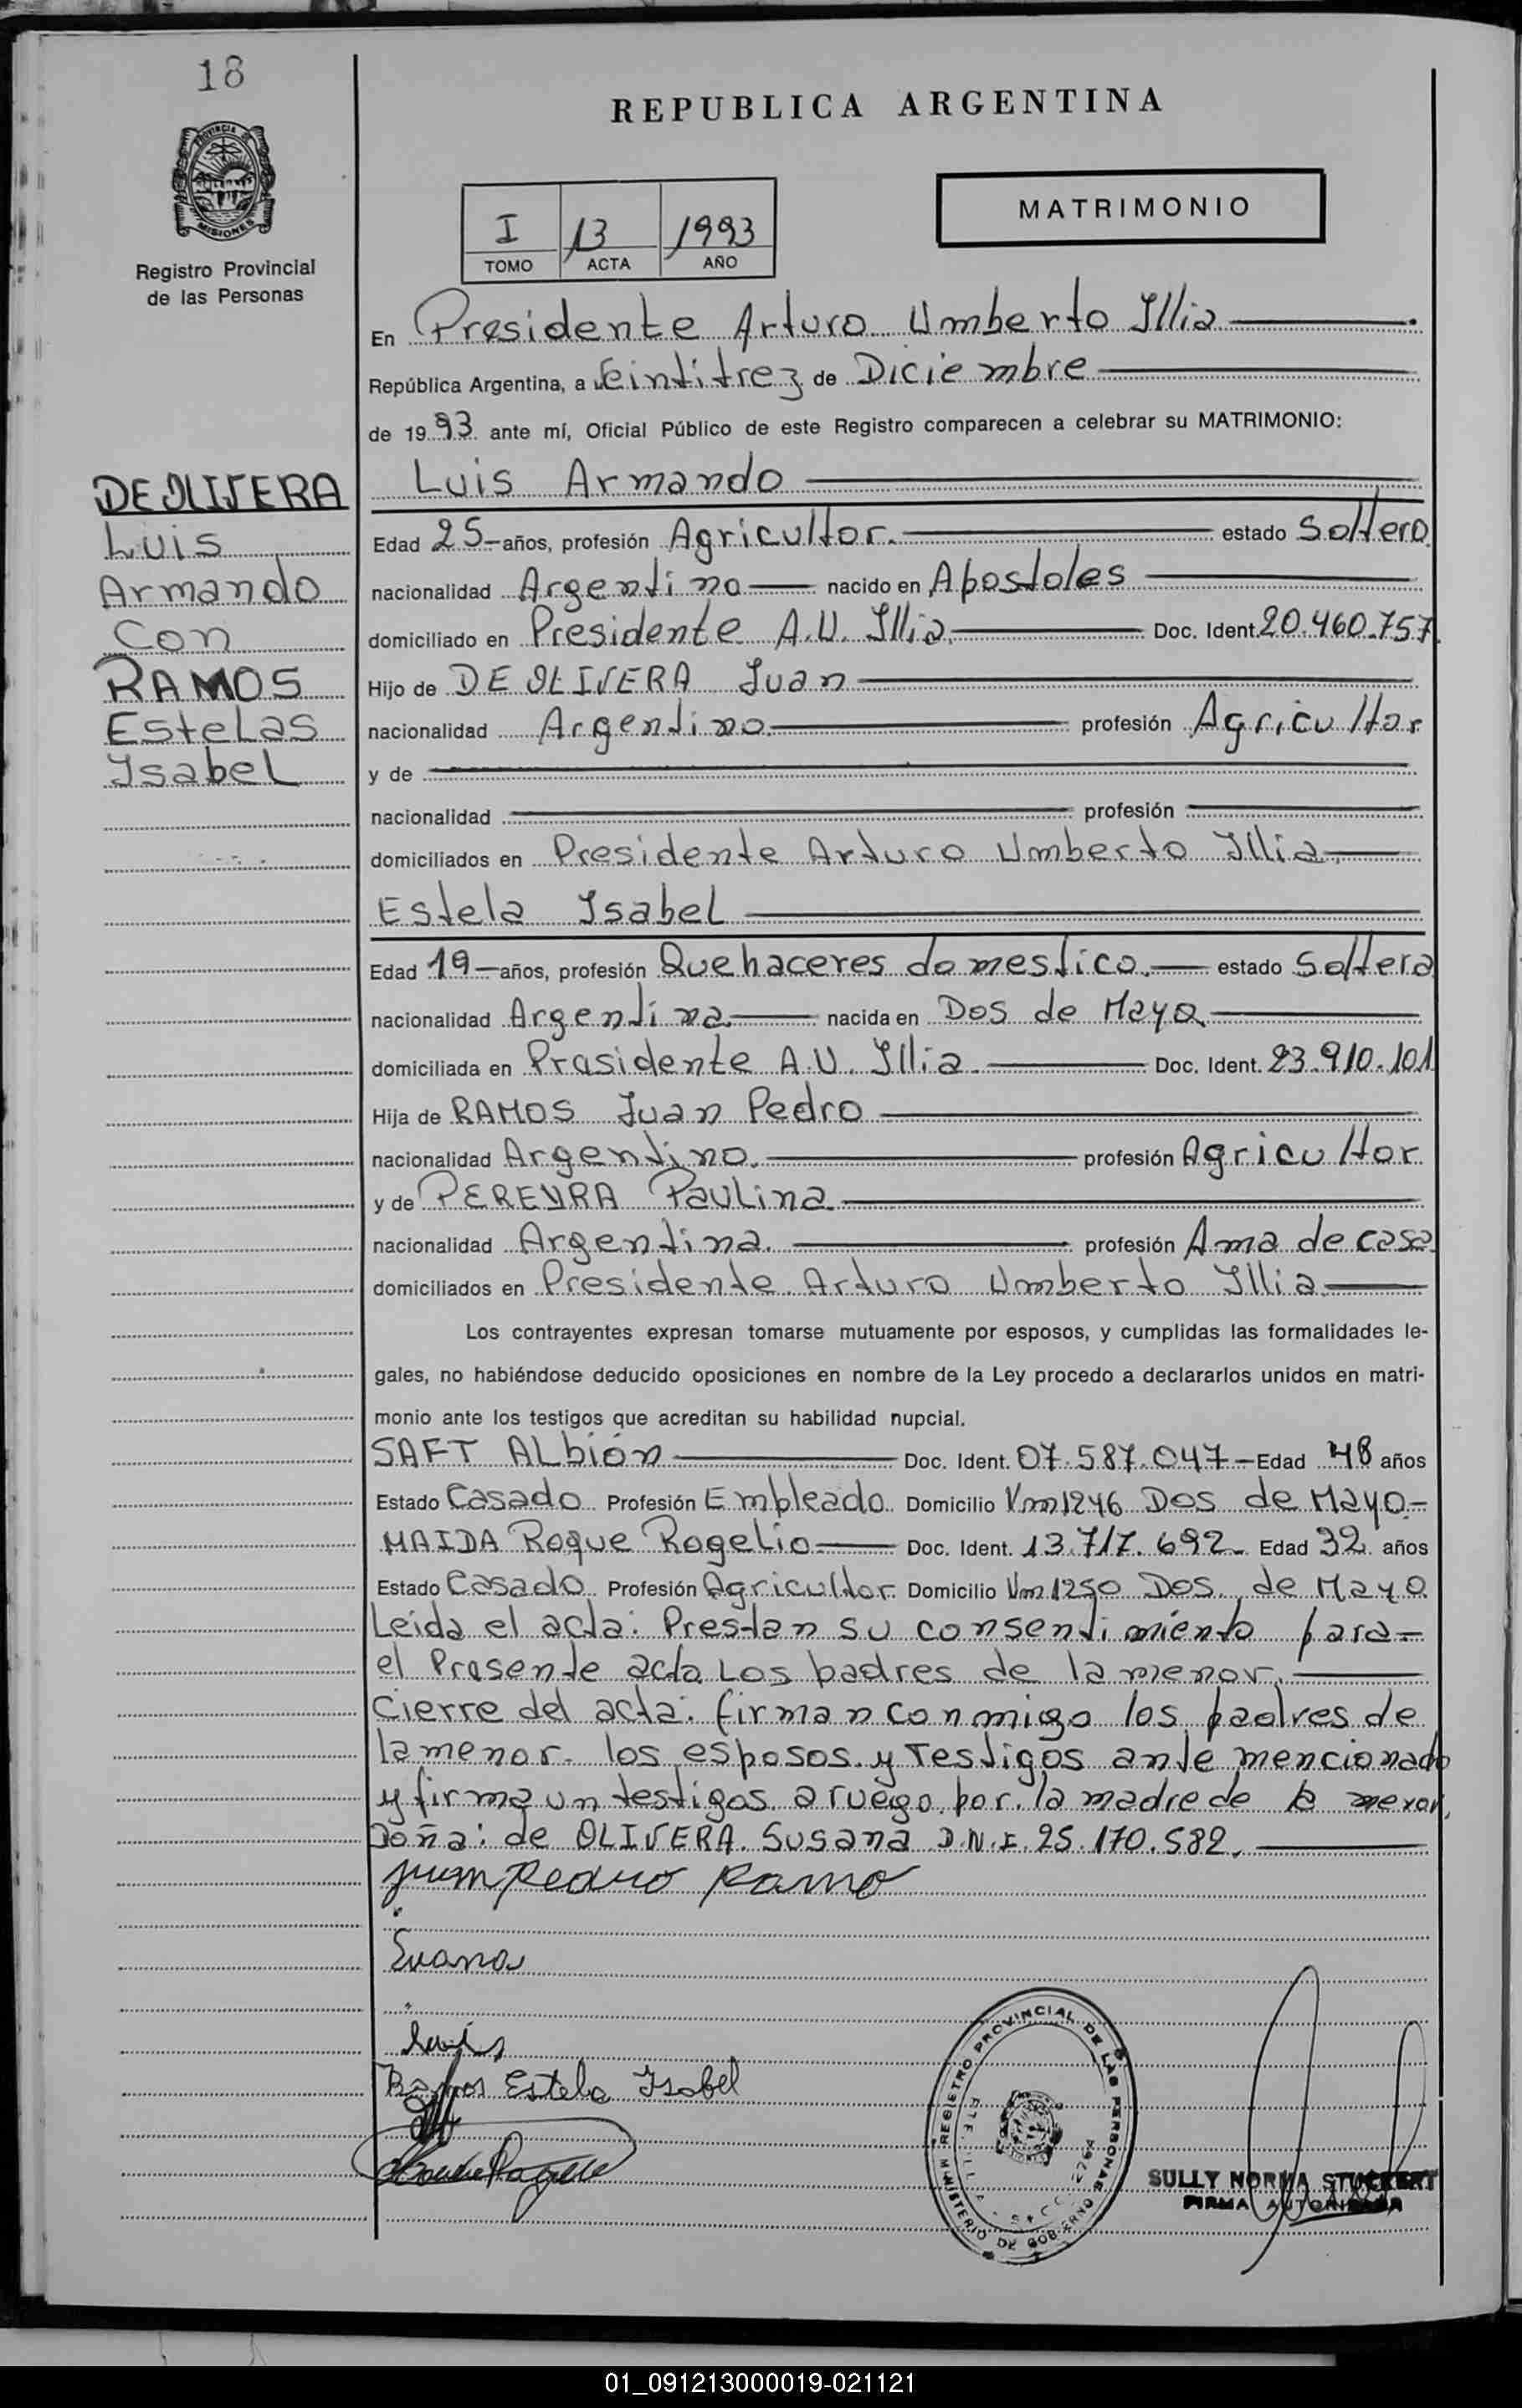 18
REPUBLICA ARGENTINA
PROVINCIA DE MISIONES
Registro Provincial
de las Personas
I 13 1993
TOMO ACTA AÑO
MATRIMONIO
En Presidente Arturo Umberto Illia
República Argentina, a veintitrez de Diciembre
de 1993 ante mí, Oficial Público de este Registro comparecen a celebrar su MATRIMONIO:
DE OLIVERA
Luis
Armando
Con
RAMOS
Estelas
Isabel
Luis Armando
Edad 25 años, profesión Agricultor. estado Soltero
nacionalidad Argentino nacido en Apostoles
domiciliado en Presidente A.U. Illia. Doc. Ident. 20.460.757
Hijo de DE OLIVERA Juan
nacionalidad Argentino profesión Agricultor
y de
nacionalidad profesión
domiciliados en Presidente Arturo Umberto Illia.
Estela Isabel
Edad 19 años, profesión Quehaceres domestico. estado Soltera
nacionalidad Argentina nacida en Dos de Mayo.
domiciliada en Presidente A.U. Illia. Doc. Ident. 23.910.101
Hija de RAMOS Juan Pedro
nacionalidad Argentino. profesión Agricultor
y de PEREYRA Paulina
nacionalidad Argentina. profesión Ama de casa
domiciliados en Presidente Arturo Umberto Illia.
Los contrayentes expresan tomarse mutuamente por esposos, y cumplidas las formalidades le-
gales, no habiéndose deducido oposiciones en nombre de la Ley procedo a declararlos unidos en matri-
monio ante los testigos que acreditan su habilidad nupcial.
SAFT ALbión Doc. Ident. 07.587.047 Edad 48 años
Estado Casado Profesión Empleado Domicilio Km 1246 Dos de Mayo.
MAIDA Roque Rogelio Doc. Ident. 13.717.692 Edad 32 años
Estado Casado Profesión Agricultor Domicilio Km 1250 Dos de Mayo
Leida el acta: Prestan su consentimiento para
el Presente acta Los padres de la menor.
Cierre del acta: firman conmigo los padres de
la menor. los esposos y Testigos ante mencionado
y firma un testigos a ruego por la madre de la menor,
Doña: de OLIVERA. Susana D.N.I. 25.170.582.
Juan Pedro Ramo
Luis
Ramos Estela Isabel
REGISTRO PROVINCIAL DE LAS PERSONAS
MINISTERIO DE GOBIERNO
SULLY NORMA STUCKERT
FIRMA AUTORIZADA
01_091213000019-021121